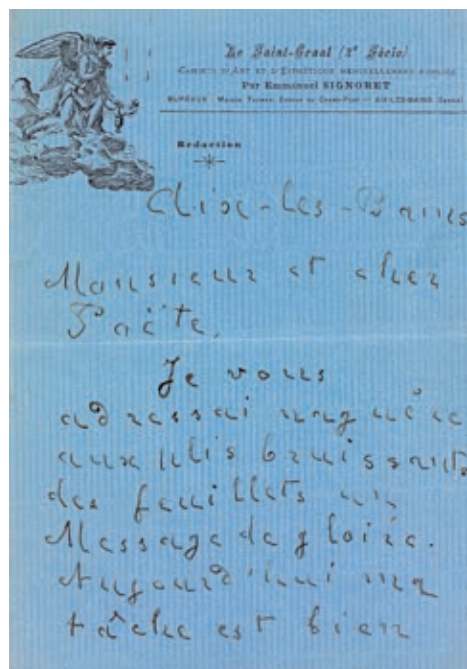 Le Saint-Graal (2e Série)
Cahiers d'Art et d'Esthétique mensuellement publiés
Par Emmanuel SIGNORET
BUREAUX AIX-LES-BAINS (Savoie)
Rédaction
Aix-les-Bains
Monsieur et cher
Poète,
Je vous
adressai naguère
aux plis bruissants
des feuillets un
Message de gloire.
Aujourd'hui ma
tâche est bien